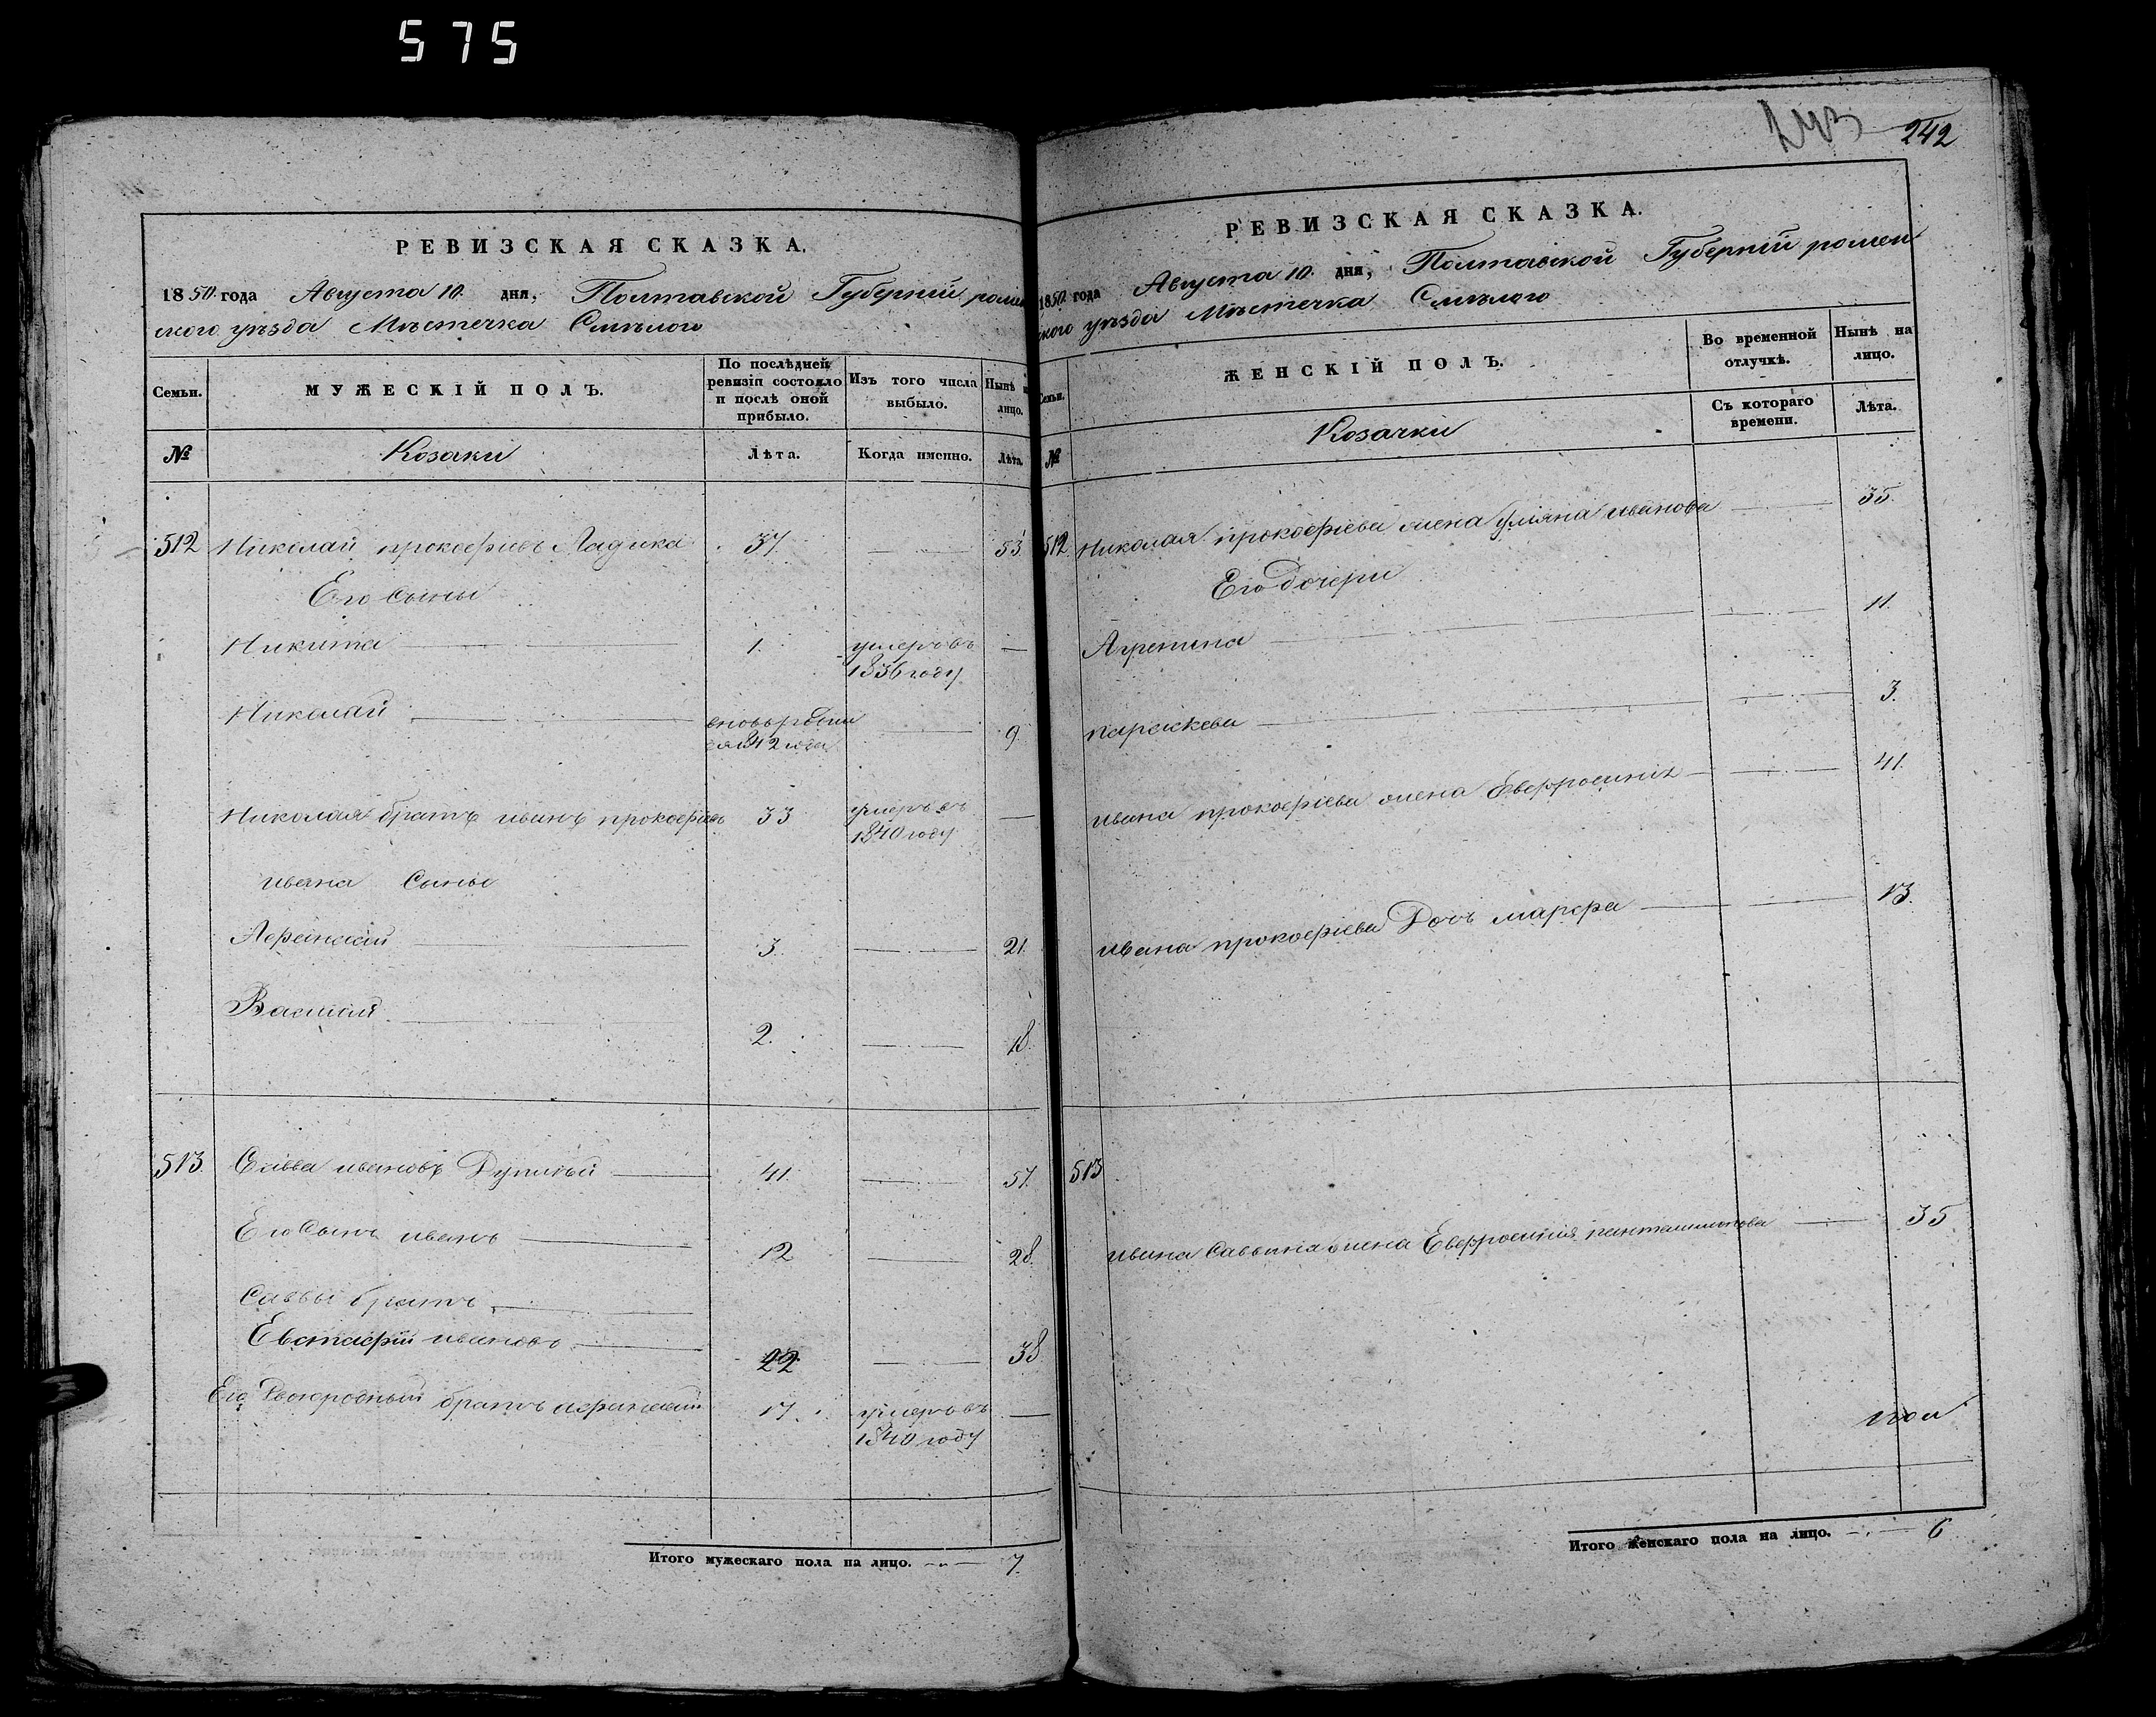 575
РЕВИЗСКАЯ СКАЗКА.
1850 года Августа 10. дня, Полтавской Губерній ромен
ского уѣзда Мѣстечка Смѣлого
Семьи.
МУЖЕСКІЙ ПОЛЪ.
По послѣдней ревизіи состояло и послѣ оной прибыло.
Изъ того числа выбыло.
Нынѣ на лицо.
№ Козаки Лѣта. Когда именно. Лѣта.
512 Николай прокофіевъ Ладика 37. 53.
Его Сыны
Никита 1. умеръ въ —
1836 году
Николай вновьродил 9.
ся 1842 года
Николая братъ иванъ прокофіевъ 33 умеръ въ —
1840 году
ивана Сыны
Афанасій 3. 21.
Василій 2. 18.
513. Савва ивановъ 41. 57.
Его Сынъ иванъ 12 28.
Саввы братъ
Евстафій ивановъ 22 38
Его Двоюродный братъ афанасій 17. умеръ въ —
1840 году
Итого мужескаго пола на лицо. 7.
243 242
РЕВИЗСКАЯ СКАЗКА.
1850 года Августа 10. дня, Полтавской Губерній ромен
ского уѣзда Мѣстечка Смѣлого
Семьи.
ЖЕНСКІЙ ПОЛЪ.
Во временной отлучкѣ.
Нынѣ на лицо.
№ Козачки
Съ котораго времени.
Лѣта.
512. Николая прокофіева жена уляна иванова 35.
Его Дочери
Агрепина 11.
параскева 3.
ивана прокофіева жена Евфросинія 41.
ивана прокофіева Дочь марфа 13.
513
ивана Саввина жена Евфросинія пантелимонова 35
Итого женскаго пола на лицо. 6